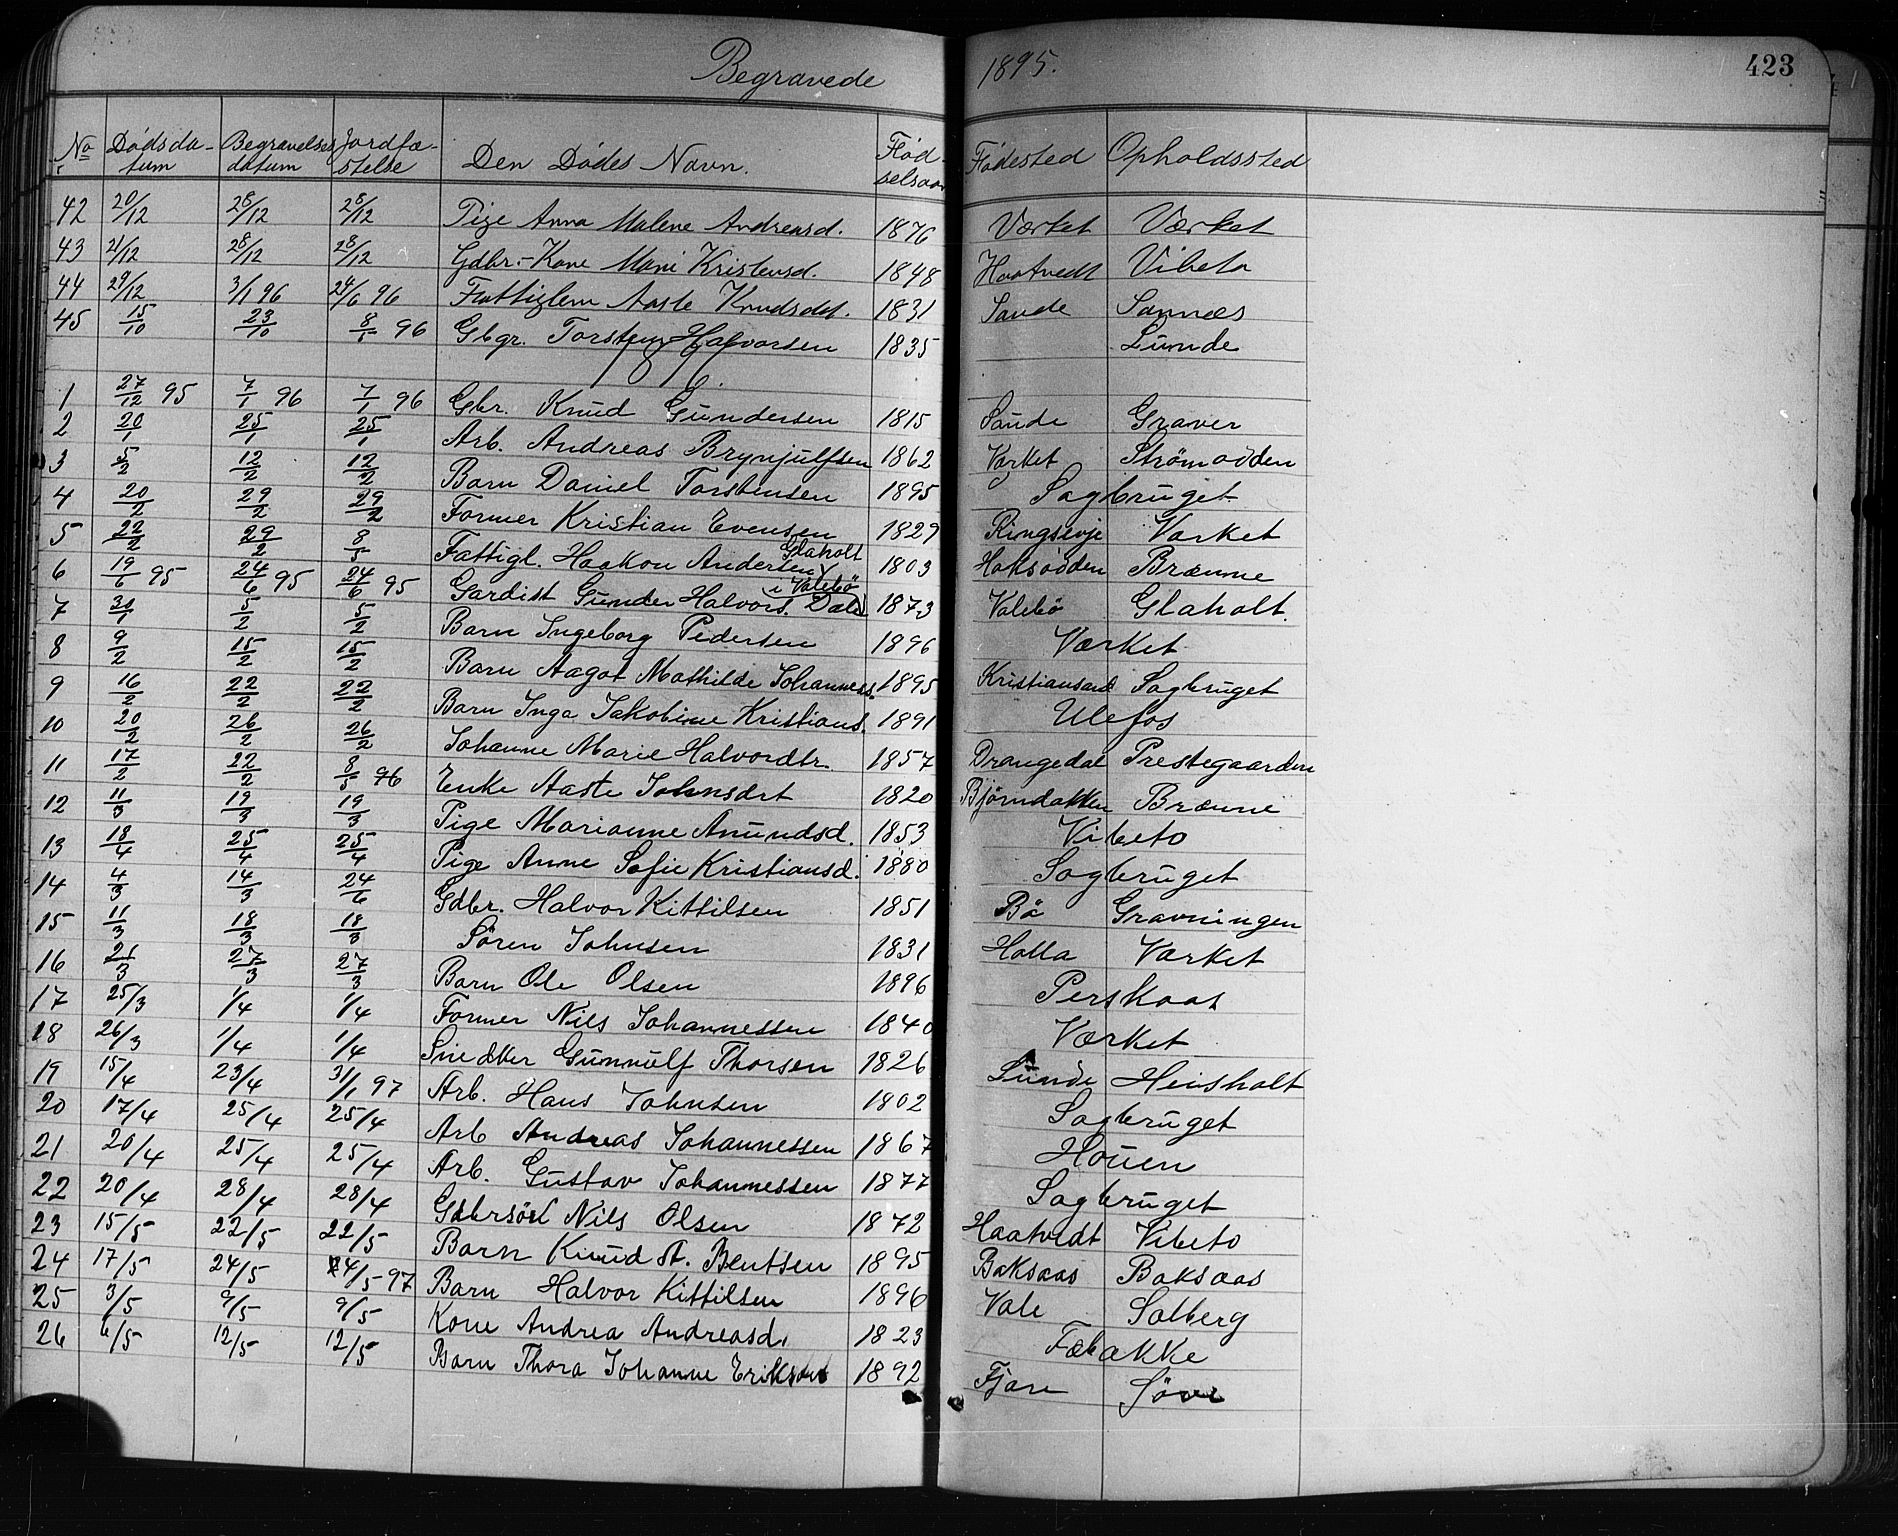 Begravede 1895. 423
No Dødsdatum Begravelsesdatum Jordfæstelse Den Dødes Navn. Fødselsaar Fødested Opholdssted
42 20/12 28/12 28/12 Pige Anna Malene Andreasd. 1876 Værket Værket
43 21/12 28/12 28/12 Gdbr.-Kone Mari Kristensd. 1848 Haatvedt Vibeto
44 29/12 3/1 96 24/6 96 Fattiglem Aaste Knudsdat. 1831 Saude Sannes
45 15/10 23/10 8/5 96 Gbgr. Torsten Halvorsen 1835 Lunde
1 27/12 95 7/1 96 7/1 96 Gbr. Knud Gundersen 1815 Saude Graver
2 20/1 25/1 25/1 Arb. Andreas Brynjulfsen 1862 Værket Strømodden
3 5/2 12/2 12/2 Barn Daniel Torstensen 1895 Sagbruget
4 20/2 29/2 29/2 Former Kristian Evensen 1829 Ringsevje Værket
5 22/2 29/2 8/5 Fattigl. Haakon Andersen 1803 Hoksodden Brænne
6 19/6 95 24/6 95 24/6 95 Gardist Gunder Halvors. Dale Glaholt i Valebø 1873 Valebø Glaholt.
7 30/1 5/2 5/2 Barn Ingeborg Pedersen 1896 Værket
8 9/2 15/2 15/2 Barn Aagot Mathilde Johanness. 1895 Kristiansand Sagbruget
9 16/2 22/2 22/2 Barn Inga Jakobine Kristians. 1891 Ulefos
10 20/2 26/2 26/2 Johanne Marie Halvordtr. 1857 Drangedal Prestegaarden
11 17/2 22/2 8/5 96 Enke Aaste Johnsdat 1820 Bjørndakken Brænne
12 11/3 19/3 19/3 Pige Marianne Anundsd. 1853 Vibeto
13 18/4 25/4 25/4 Pige Anne Sofie Kristiansd. 1880 Sagbruget
14 4/3 14/3 24/6 Gdbr. Halvor Kittilsen 1851 Bø Gravningen
15 11/3 18/3 18/3 Søren Johnsen 1831 Holla Værket
16 21/3 27/3 27/3 Barn Ole Olsen 1896 Perskaas
17 25/3 1/4 1/4 Former Nils Johannessen 1840 Værket
18 26/3 1/4 1/4 Snedker Gunnulf Thorsen 1826 Lunde Heisholt
19 15/4 23/4 31/1 97 Arb. Hans Johnsen 1802 Sagbruget
20 17/4 25/4 25/4 Arb Andreas Johannessen 1867 Houen
21 20/4 25/4 25/4 Arb. Gustav Johannessen 1877 Sagbruget
22 20/4 28/4 28/4 Gdbrsøn Nils Olsen 1872 Haatvedt Vibeto
23 15/5 22/5 22/5 Barn Knud A. Bentsen 1895 Baksaas Baksaas
24 17/5 24/5 24/5-97 Barn Halvor Kittilsen 1896 Vale Solberg
25 3/5 9/5 9/5 Kone Andrea Andreasd. 1823 Fæbakke
26 6/5 12/5 12/5 Barn Thora Johanne Eriksdat 1892 Fjære Søve